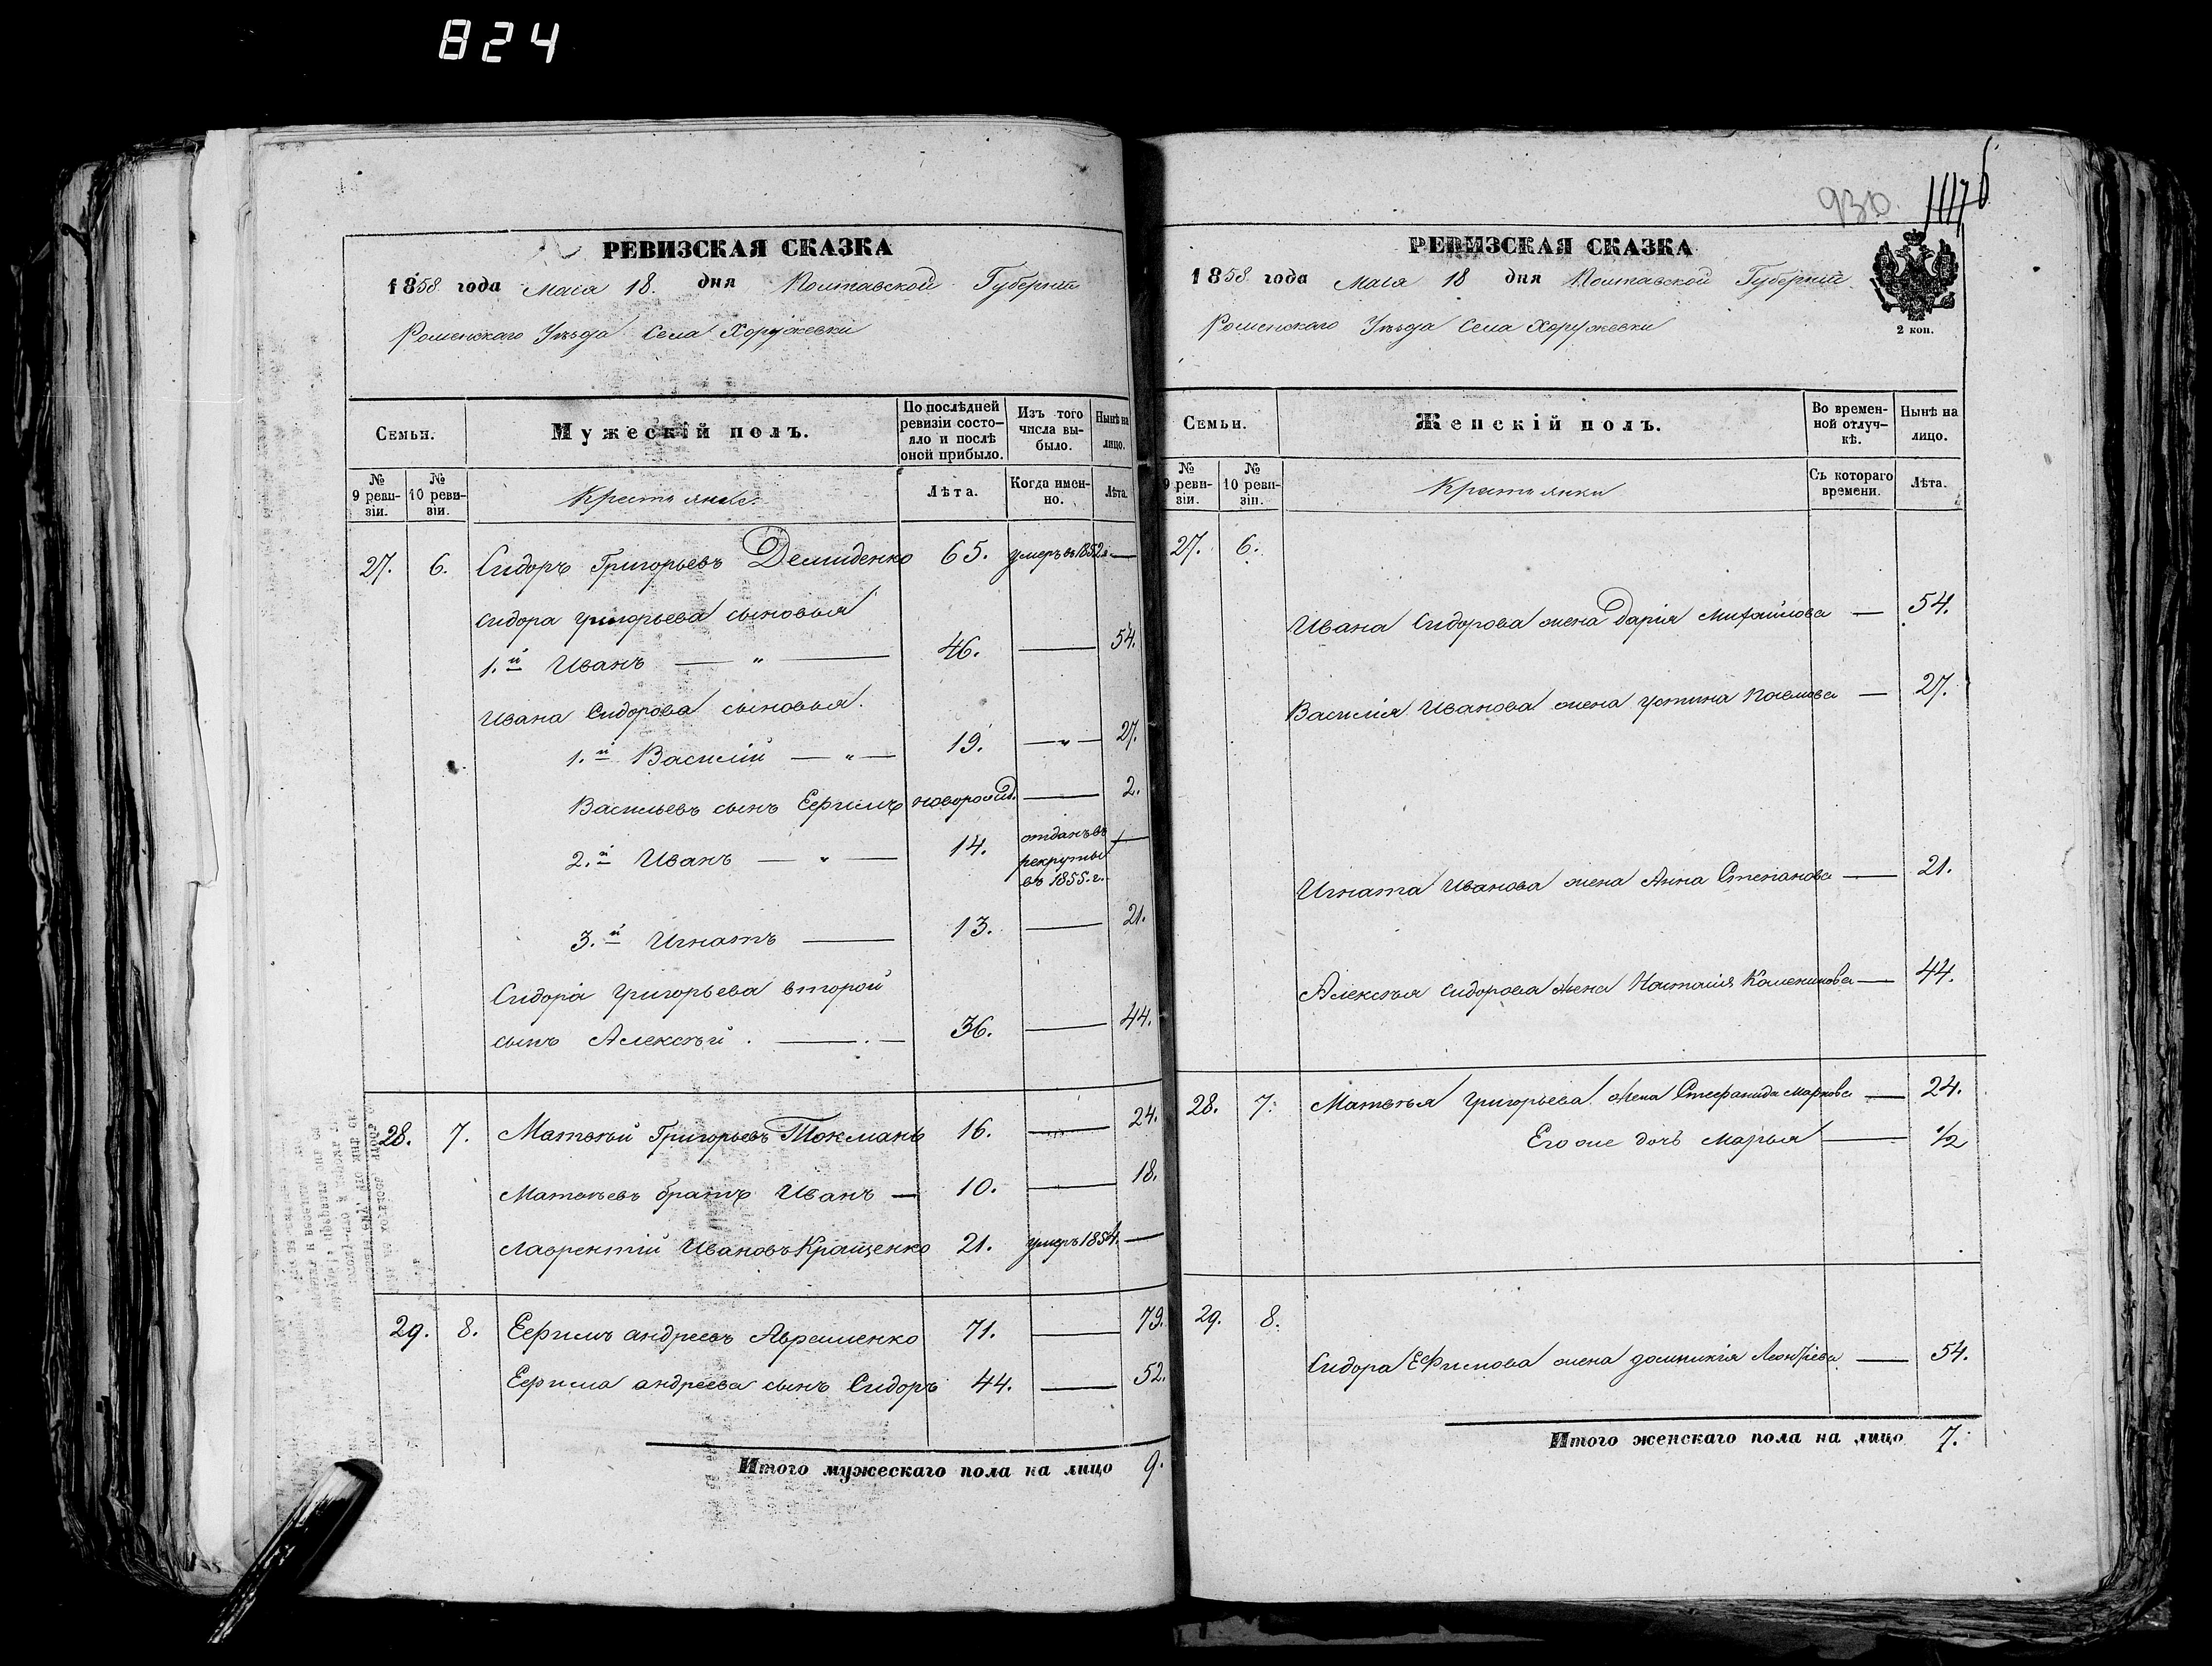 824
930.
РЕВИЗСКАЯ СКАЗКА
1858 года Маія 18. дня Полтавской Губерніи
Роменскаго Уѣзда Села Хоружевки
Семьи.
Мужескій полъ.
По послѣдней ревизіи состояло и послѣ оной прибыло.
Изъ того числа выбыло.
Нынѣ на лицо.
№ 9 ревизіи.
№ 10 ревизіи.
Крестьяне.
Лѣта.
Когда именно.
Лѣта.
27. 6. Сидоръ Григорьевъ Демиденко 65. умеръ въ 1852 г. —
Сидора Григорьева сыновья
1.й Иванъ — " — 46. — 54.
Ивана Сидорова сыновья.
1.й Василій — " — 19. — " — 27.
Васильевъ сынъ Ефимъ новорожд. — 2.
2.й Иванъ — " — 14. отданъ въ рекруты въ 1855 г. —
3.й Игнатъ — 13. — 21.
Сидора Григорьева второй
сынъ Алексѣй. — 36. — 44.
28. 7. Матвѣй Григорьевъ Токмань 16. — 24.
Матвѣевъ братъ Иванъ — 10. — 18.
Лаврентій Ивановъ Кращенко 21. умеръ 1854. —
29. 8. Ефимъ Андреевъ Авраменко 71. — 79.
Ефима Андреева сынъ Сидоръ 44. — 52.
Итого мужескаго пола на лицо 9.
РЕВИЗСКАЯ СКАЗКА
1858 года Маія 18 дня Полтавской Губерніи
Роменскаго Уѣзда Села Хоружевки
2 коп.
Семьи.
Женскій полъ.
Во временной отлучкѣ.
Нынѣ на лицо.
№ 9 ревизіи.
№ 10 ревизіи.
Крестьянки
Съ котораго времени.
Лѣта.
27. 6.
Ивана Сидорова жена Дарія Михайлова — 54.
Василія Иванова жена Устина Павлова — 27.
Игната Иванова жена Анна Степанова — 21.
Алексѣя Сидорова жена Наталія — 44.
28. 7. Матвѣя Григорьева жена Стефанида Маркова — 24.
Его же дочь Марья — 1/2
29. 8.
Сидора Ефимова жена Домникія Леонтіева — 54.
Итого женскаго пола на лицо 7.